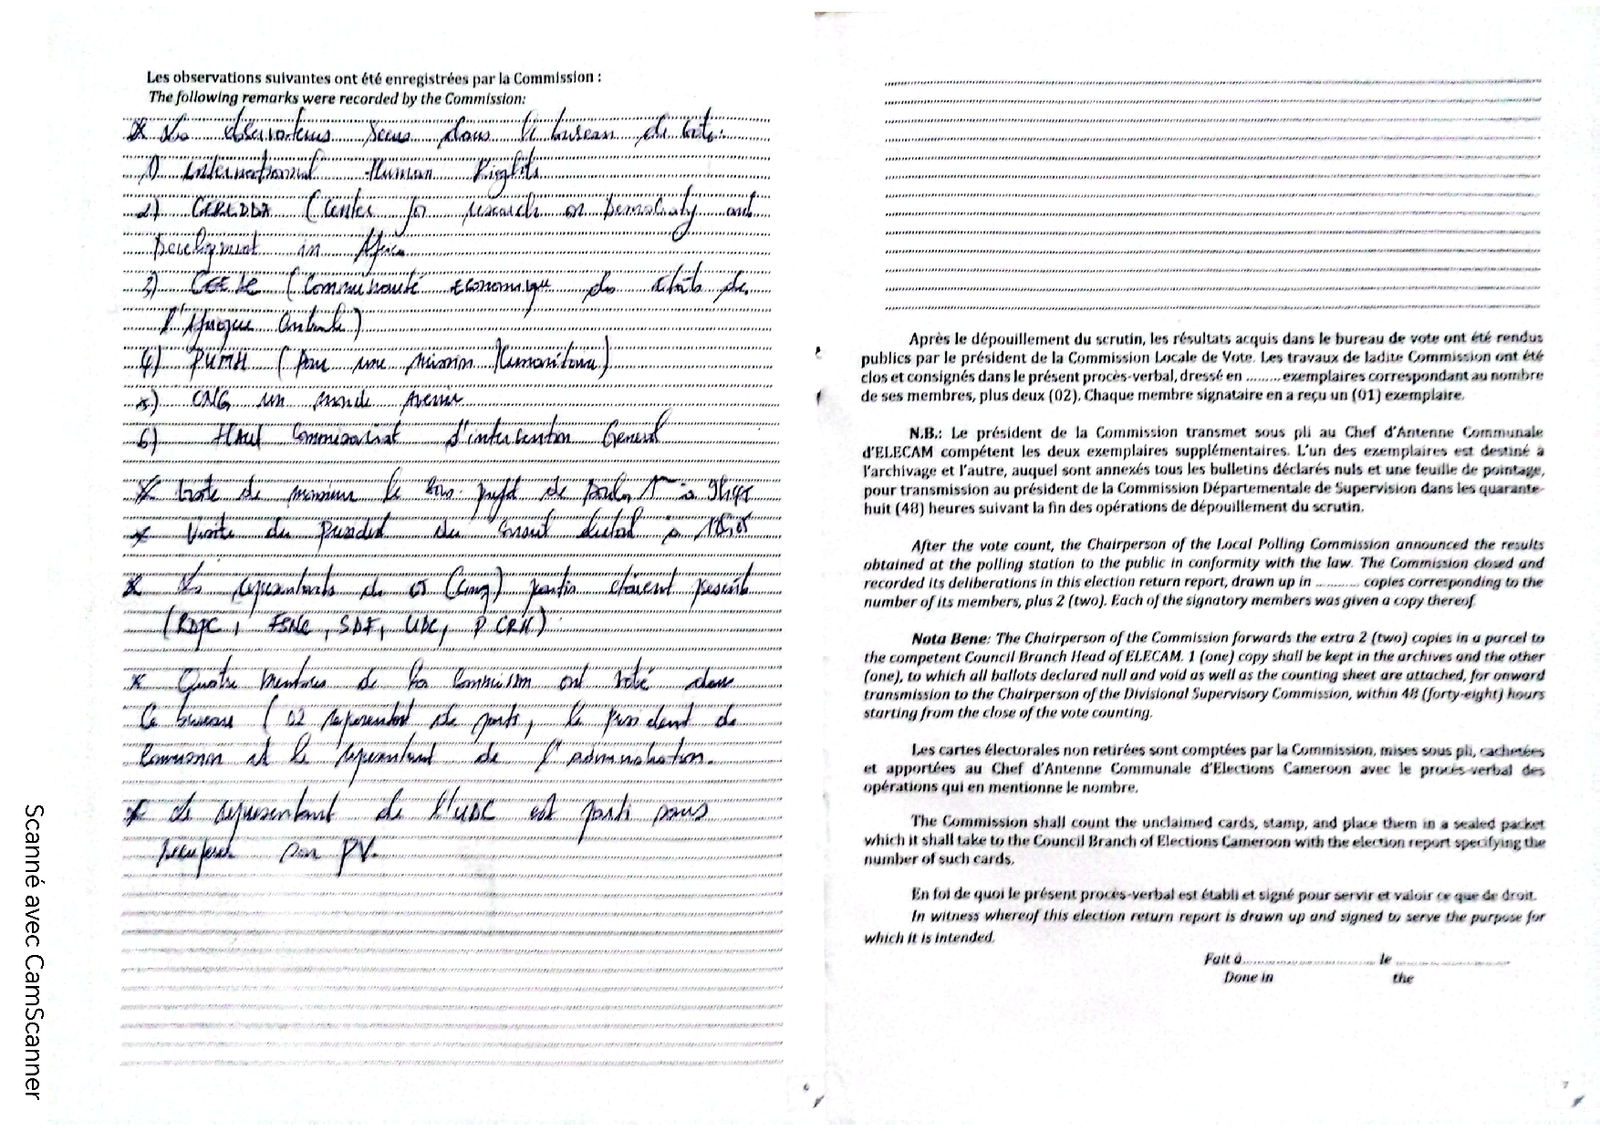 Les observations suivantes ont été enregistrées par la Commission :
The following remarks were recorded by the Commission:
* Les observateurs reçus dans le bureau de vote:
1) International Human Rights
2) CEREDDA (Center for research on Democraty and
Development in Africa
3) CEEAC (Communauté Economique des états de
l'Afrique Centrale)
4) PUMH (Pour une mission Humanitaire)
5) ONG un monde Avenir
6) Haut Commissariat d'intervention General
* de monsieur le sous préfet de Douala 1er à 9h45
* Visite du President du Conseil électoral à
* Les representants de 05 (Cinq) partis étaient présents
(RDPC, FSNC, SDF, UDC, PCRN)
* Quatre membres de la Commission ont voté dans
ce bureau (02 representant de parti, le president de
Commission et le representant de l'administration.
* Le representant de l'UDC est parti sans
recuperer son PV.
6
Après le dépouillement du scrutin, les résultats acquis dans le bureau de vote ont été rendus
publics par le président de la Commission Locale de Vote. Les travaux de ladite Commission ont été
clos et consignés dans le présent procès-verbal, dressé en ......... exemplaires correspondant au nombre
de ses membres, plus deux (02). Chaque membre signataire en a reçu un (01) exemplaire.
N.B.: Le président de la Commission transmet sous pli au Chef d'Antenne Communale
d'ELECAM compétent les deux exemplaires supplémentaires. L'un des exemplaires est destiné à
l'archivage et l'autre, auquel sont annexés tous les bulletins déclarés nuls et une feuille de pointage,
pour transmission au président de la Commission Départementale de Supervision dans les quarante-
huit (48) heures suivant la fin des opérations de dépouillement du scrutin.
After the vote count, the Chairperson of the Local Polling Commission announced the results
obtained at the polling station to the public in conformity with the law. The Commission closed and
recorded its deliberations in this election return report, drawn up in ........... copies corresponding to the
number of its members, plus 2 (two). Each of the signatory members was given a copy thereof.
Nota Bene: The Chairperson of the Commission forwards the extra 2 (two) copies in a parcel to
the competent Council Branch Head of ELECAM. 1 (one) copy shall be kept in the archives and the other
(one), to which all ballots declared null and void as well as the counting sheet are attached, for onward
transmission to the Chairperson of the Divisional Supervisory Commission, within 48 (forty-eight) hours
starting from the close of the vote counting.
Les cartes électorales non retirées sont comptées par la Commission, mises sous pli, cachetées
et apportées au Chef d'Antenne Communale d'Elections Cameroon avec le procès-verbal des
opérations qui en mentionne le nombre.
The Commission shall count the unclaimed cards, stamp, and place them in a sealed packet
which it shall take to the Council Branch of Elections Cameroon with the election report specifying the
number of such cards.
En foi de quoi le présent procès-verbal est établi et signé pour servir et valoir ce que de droit.
In witness whereof this election return report is drawn up and signed to serve the purpose for
which it is intended.
Fait à.............................. le .........................
Done in the
7
Scanné avec CamScanner